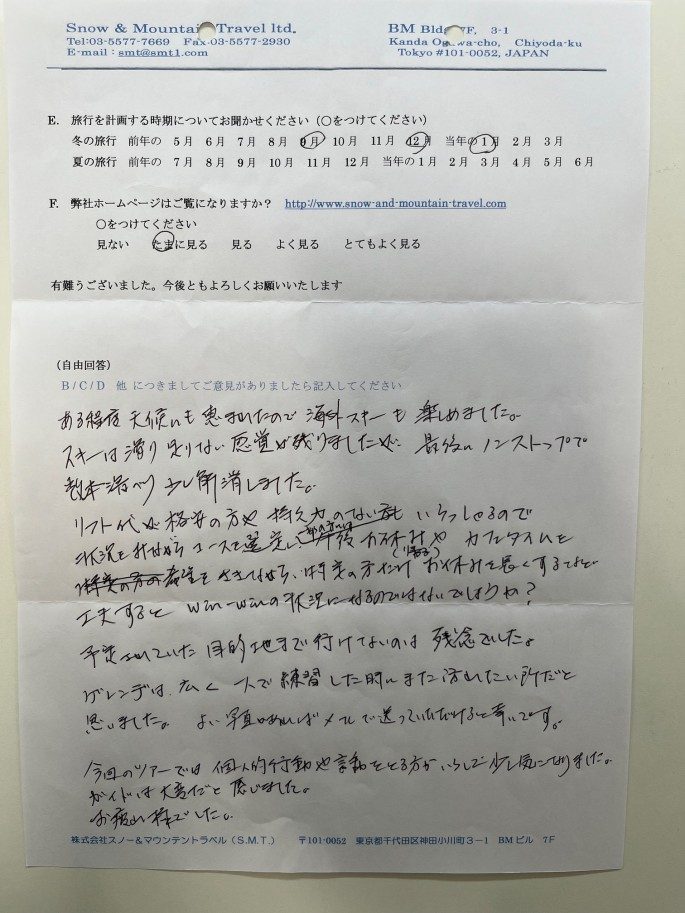 Snow & Mountain Travel ltd.
BM Bldg 7F, 3-1
Tel:03-5577-7669 Fax:03-5577-2930
Kanda Ogawa-cho, Chiyoda-ku
E-mail : smt@smt1.com
Tokyo #101-0052, JAPAN
E. 旅行を計画する時期についてお聞かせください（○をつけてください）
冬の旅行 前年の 5月 6月 7月 8月 9月 10月 11月 12月 当年の1月 2月 3月
夏の旅行 前年の 7月 8月 9月 10月 11月 12月 当年の1月 2月 3月 4月 5月 6月
F. 弊社ホームページはご覧になりますか？ http://www.snow-and-mountain-travel.com
○をつけてください
見ない たまに見る 見る よく見る とてもよく見る
有難うございました。今後ともよろしくお願いいたします
（自由回答）
B/C/D 他 につきましてご意見がありましたら記入してください
ある程度 天候にも恵まれたので 海外スキーも 楽しめました。
スキーは滑り足りない感覚が残りましたが、最後にノンストップで
数本滑べり 少し解消しました。
リフト代が 格安の方や 持久力のない方も いらっしゃるので
状況をみながら コースを選定し 午後 お休みや カフェタイムと
特定の方だけ お休みを長くするなど
工夫すると win-winの状況になるのではないでしょうか？
予定されていた目的地まで行けてないのは 残念でした。
ゲレンデは、広く 一人で練習した時にまた訪れたい所だと
思いました。 よい写真があればメールで送っていただけると幸いです。
今回のツアーでは 個人的行動や言動をとる方がいらして少し気になりました。
ガイドは大変だと感じました。
お疲れ様でした。
株式会社スノー＆マウンテントラベル（S.M.T.） 〒101-0052 東京都千代田区神田小川町3－1 BMビル 7F